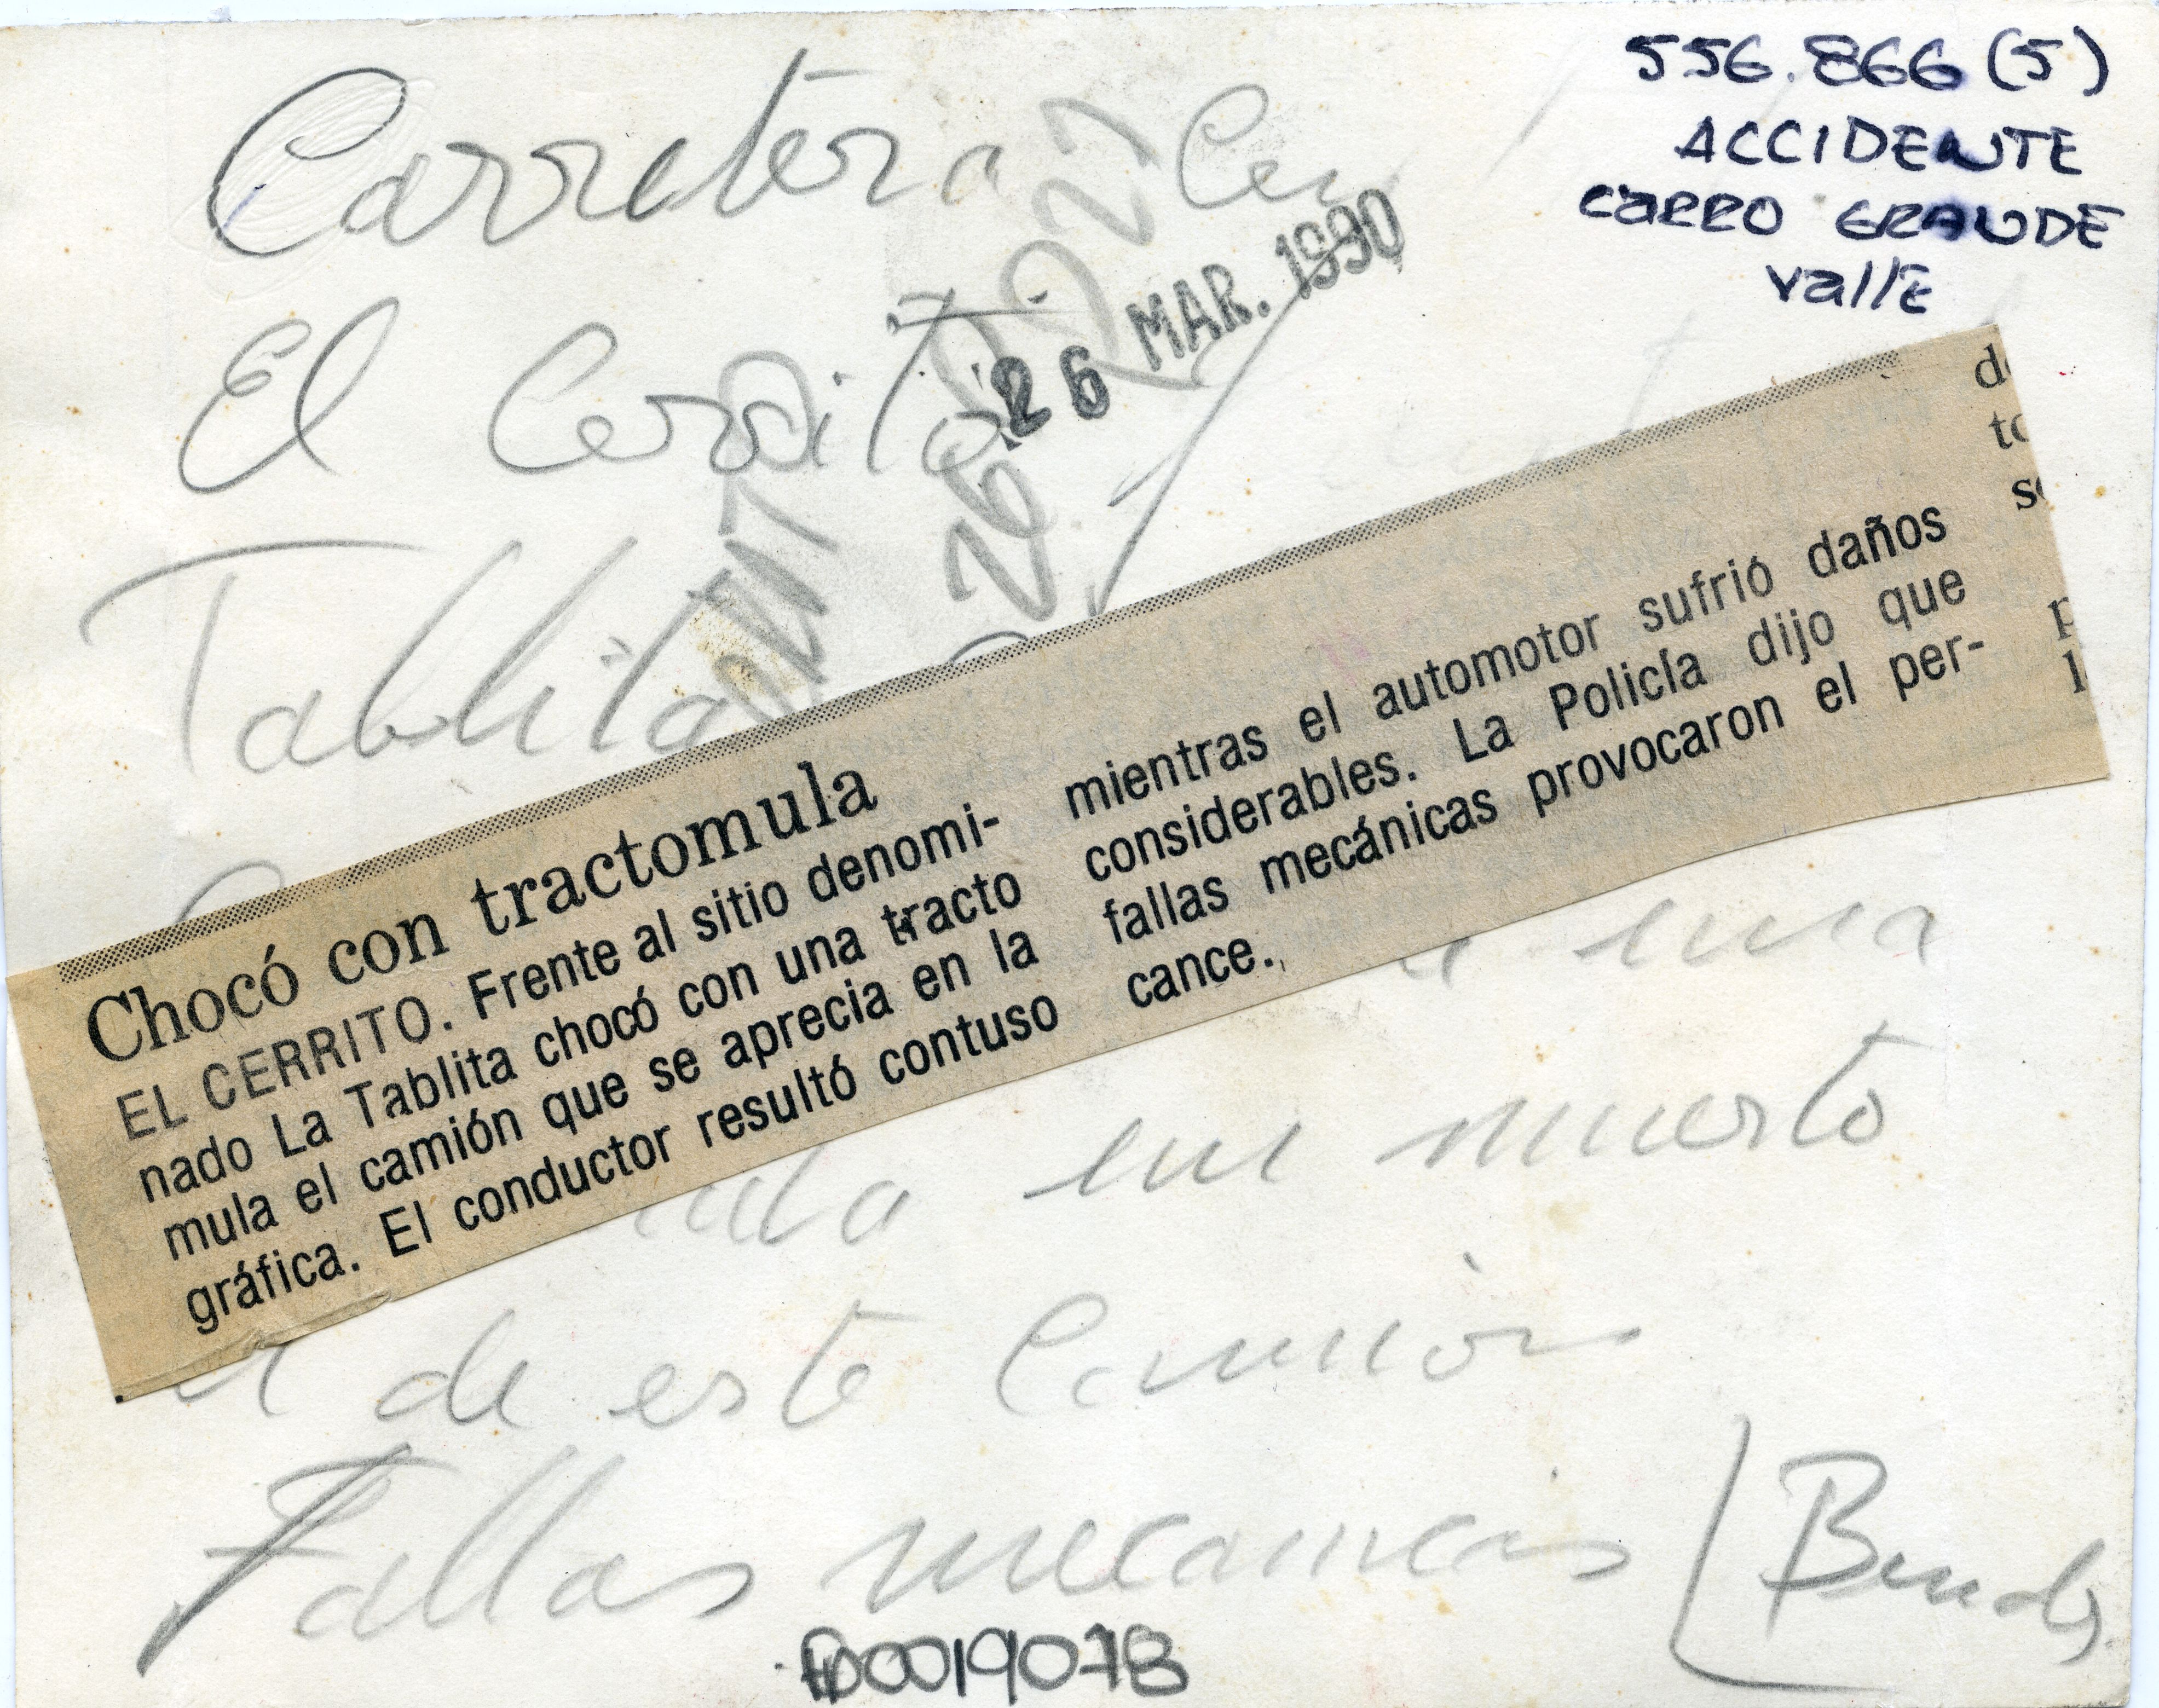 556.866 (5)
ACCIDENTE
CARRO GRANDE
VallE
Carretera
26 MAR. 1990
El Cerrito
Tablita
Chocó con tractomula
EL CERRITO. Frente al sitio denomi-
nado La Tablita chocó con una tracto
mula el camión que se aprecia en la
gráfica. El conductor resultó contuso
mientras el automotor sufrió daños
considerables. La Policía dijo que
fallas mecánicas provocaron el per-
cance.
una
un muerto
de este Camion
Fallas mecanicas